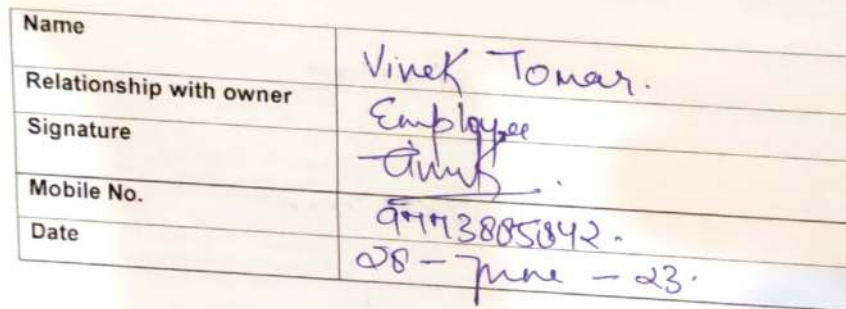 Name Vivek Tomar.
Relationship with owner Employee
Signature
Mobile No. 9773805842.
Date 28 - June - 23.